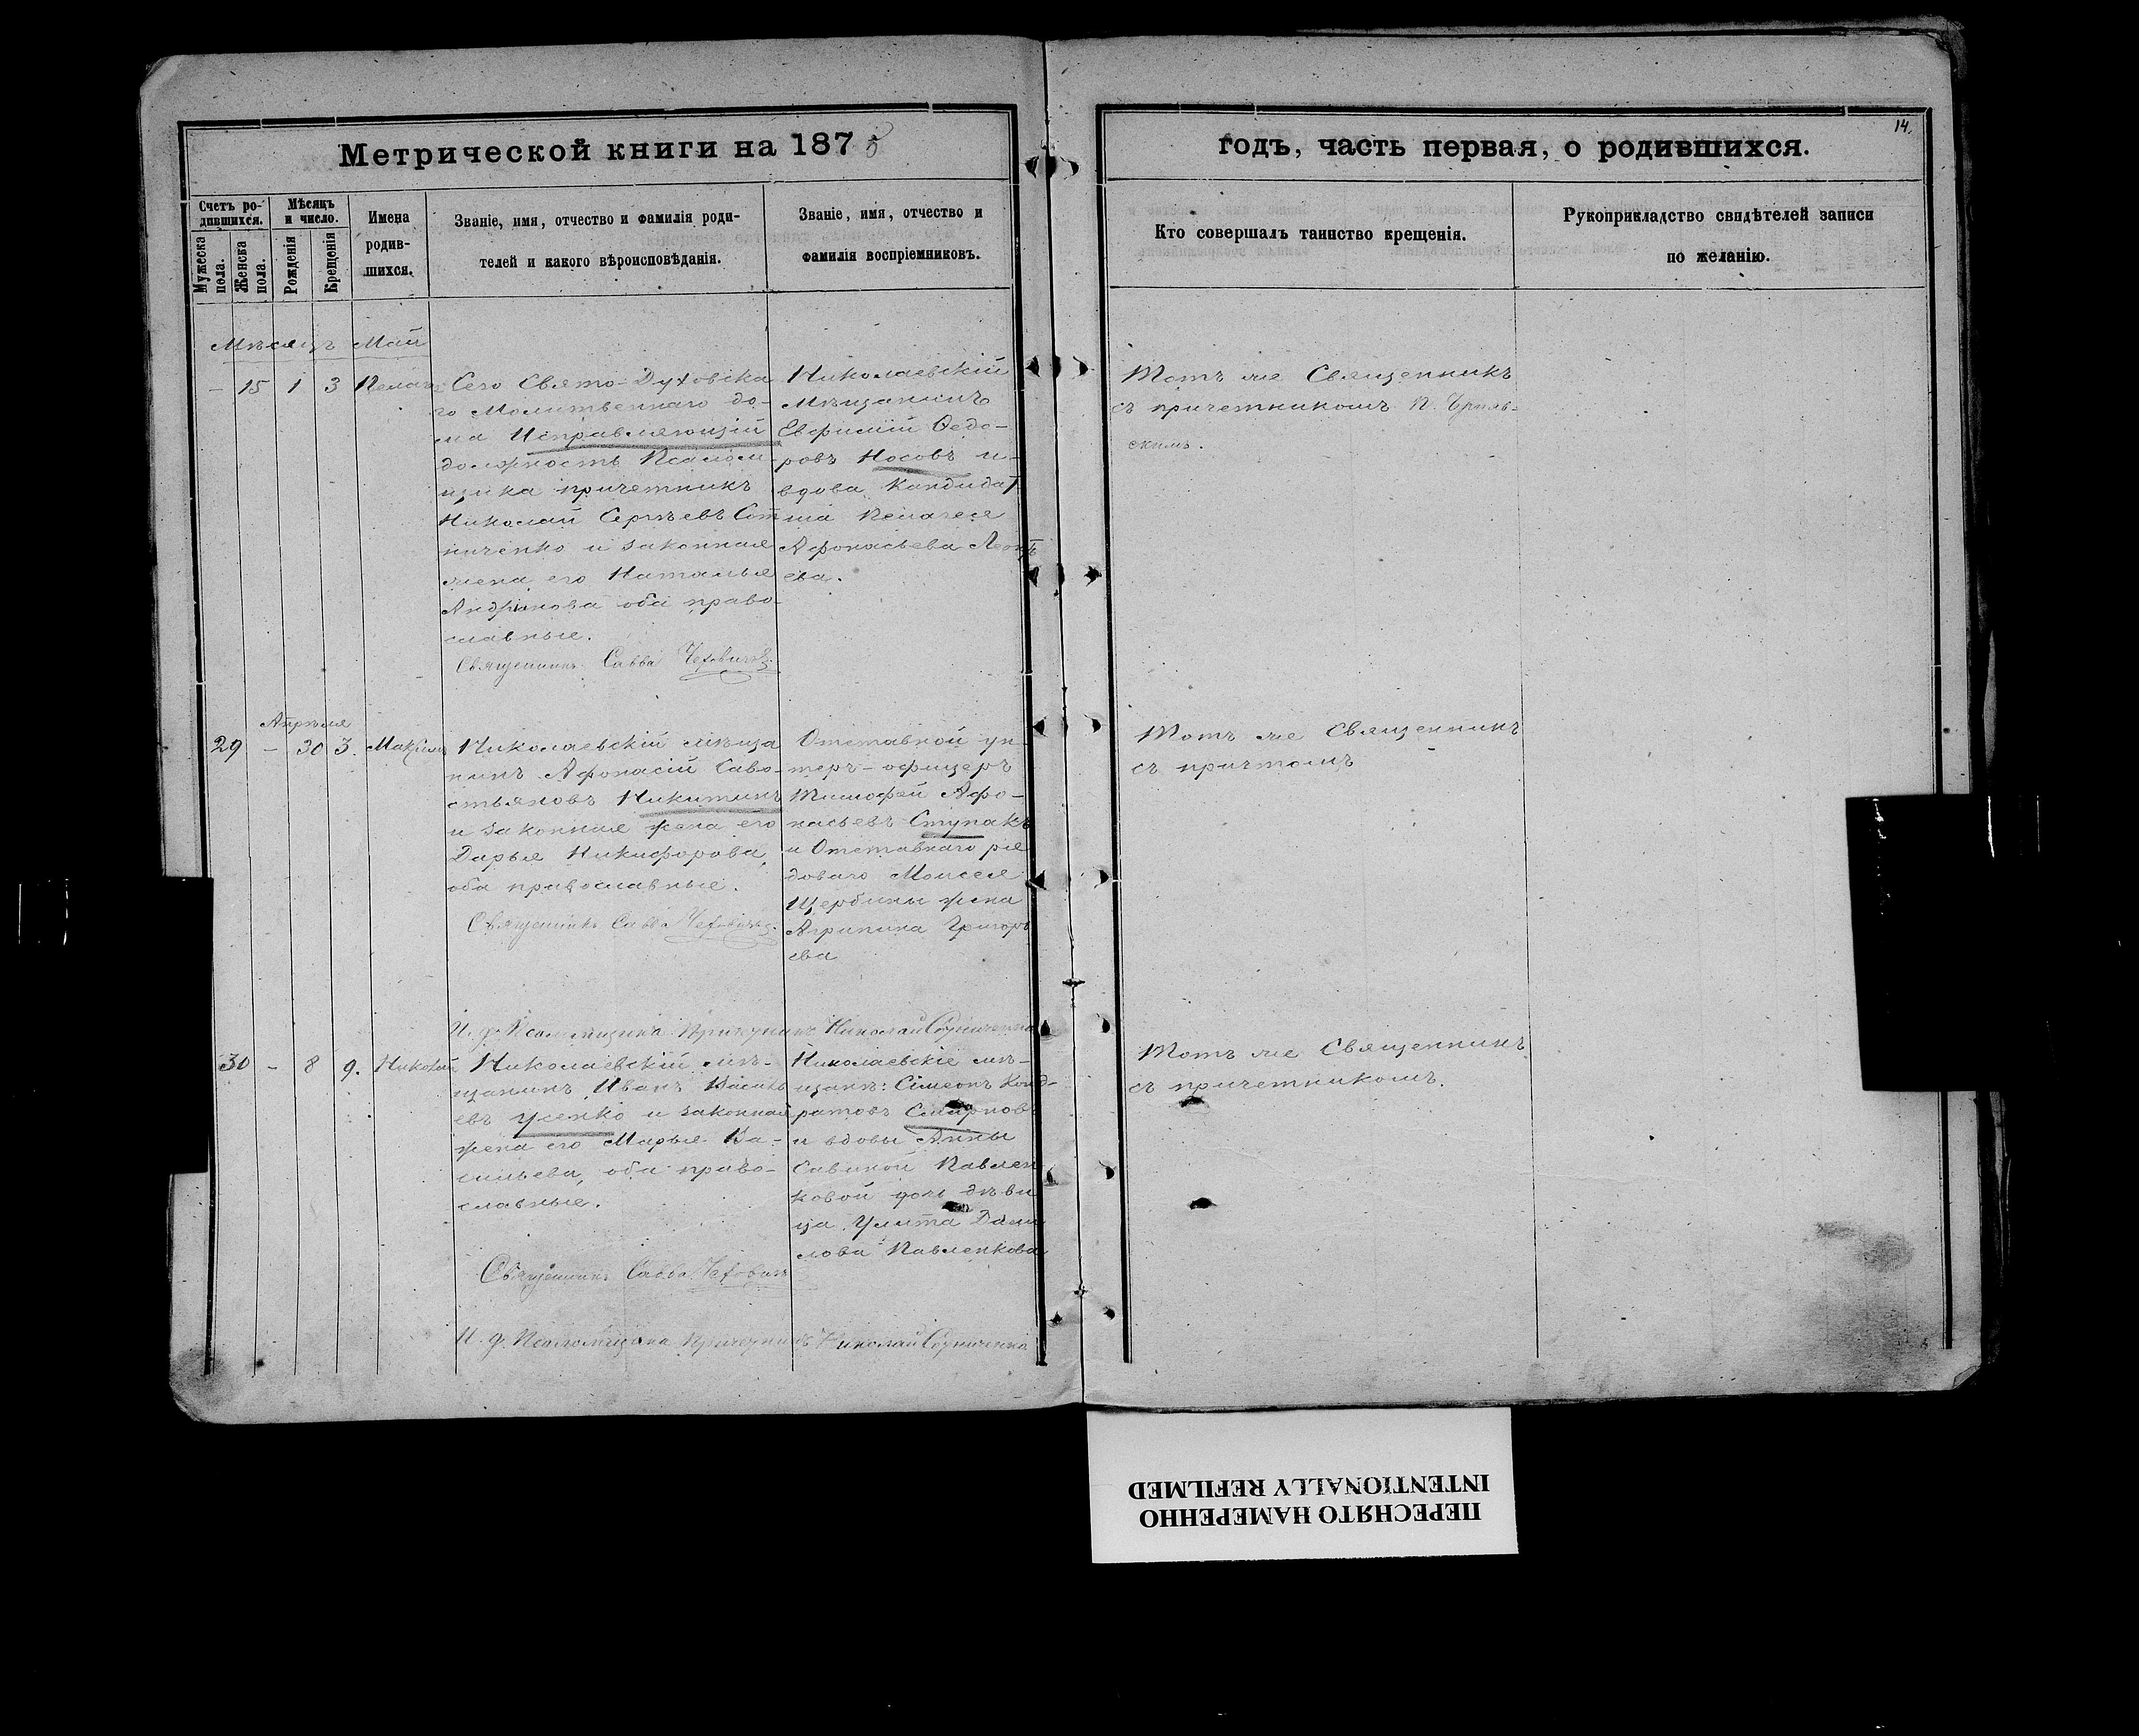 Метрической книги на 187
годъ, часть первая, о родившихся.
14.
Счетъ ро-
дившихся.
Мужеска пола.
Женска пола.
Мѣсяцъ
и число.
Рожденія
Крещенія
Имена
родив-
шихся.
Званіе, имя, отчество и фамилія роди-
телей и какого вѣроисповѣданія.
Званіе, имя, отчество и
фамилія воспріемниковъ.
Кто совершалъ таинство крещенія.
Рукоприкладство свидѣтелей записи
по желанію.
Мѣсяцъ Май
- 15 1 3
Сего Свято-Духовска
го Молитвеннаго до-
ма Исправляющій
должность Псалом-
щика причетникъ
Николай Сергѣевъ Сот
ниченко и законная
жена его Наталья
Андріянова оба право-
славные.
Священникъ Савва
Николаевскій
Мѣщанинъ
Евфимій Ѳедо-
ровъ Носовъ и
вдова Кандидат
ша Пелагея
Афонасьева Леонть
ева.
Тотъ же Священникъ
съ причетникомъ П.
скимъ.
Апрѣля
29 - 30 3. Максимъ
Николаевскій мѣща
нинъ Афонасій Саво-
стьяновъ Никитинъ
и законная жена его
Дарья Никифорова,
оба православные.
Священникъ Савва
Отставной ун-
теръ-офицеръ
Тимофей Афо-
насьевъ Ступакъ
и Отставнаго ря
доваго Моисея
Щербины жена
Агрипина Григорь
ева
Тотъ же Священникъ
съ причтомъ
И. д. Псаломщика Причетникъ Николай Сотниченко
30 - 8 9. Николай
Николаевскій мѣ-
щанинъ Иванъ Василь
евъ Усенко и законная
жена его Марья Ва-
сильева, оба право-
славные.
Священникъ Савва
Николаевскіе мѣ-
щане: Сімеонъ Конд-
ратовъ Смирновъ
и вдовы Анны
Савиной Павлен
ковой дочь дѣви
ца Улита Дани
лова Павленкова
Тотъ же Священникъ
съ причетникомъ.
И. д. Псаломщика Причетникъ Николай Сотниченко
ПЕРЕСНЯТО НАМЕРЕННО
INTENTIONALLY REFILMED